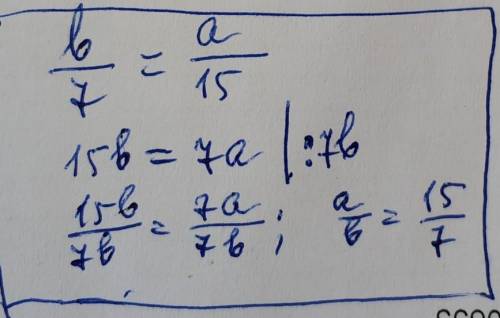 b/7 = a/15
15b = 7a |:7b
15b/7b = 7a/7b; a/b = 15/7